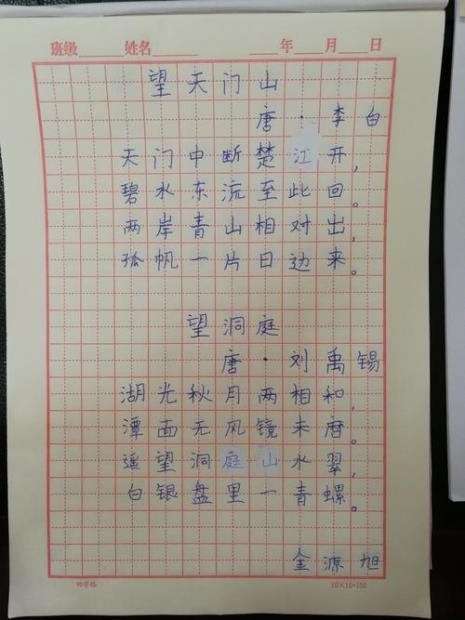 班级 姓名 年 月 日
望天门山
唐·李白
天门中断楚江开，
碧水东流至此回。
两岸青山相对出，
孤帆一片日边来。
望洞庭
唐·刘禹锡
湖光秋月两相和，
潭面无风镜未磨。
遥望洞庭山水翠，
白银盘里一青螺。
金源旭